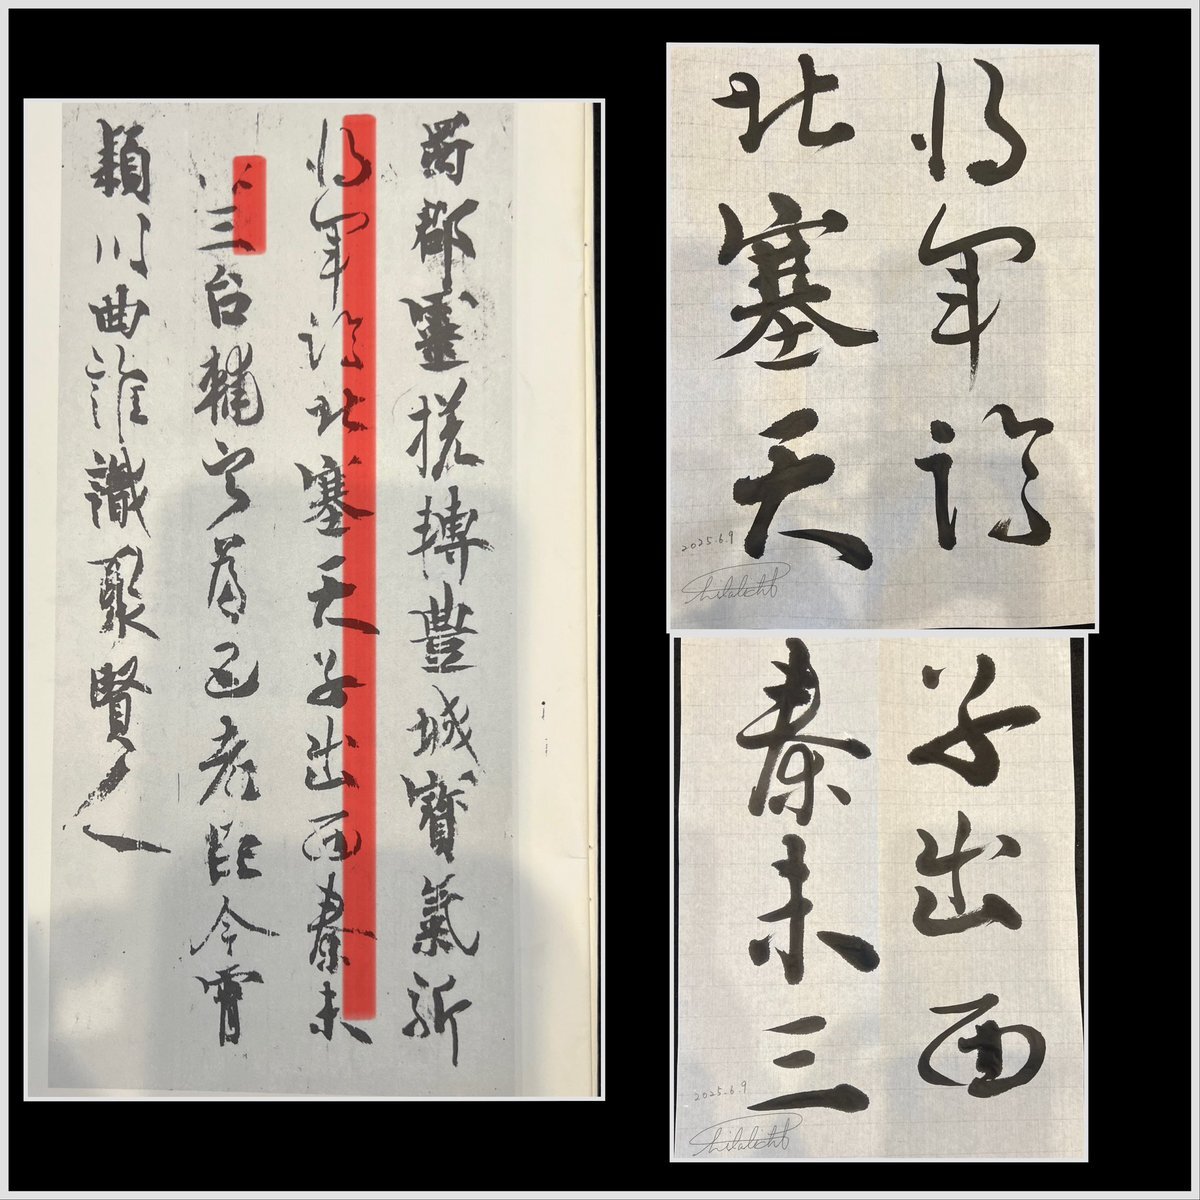 蜀郡靈槎轉豐城寶氣新
將軍臨北塞天子出西秦未
三台輔寧為五老臣今宵
潁川曲誰識聚賢人
將軍臨
北塞天
2025.6.9
子出西
秦未三
2025.6.9